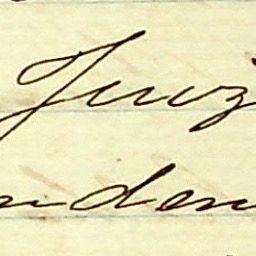 Juiz
nden